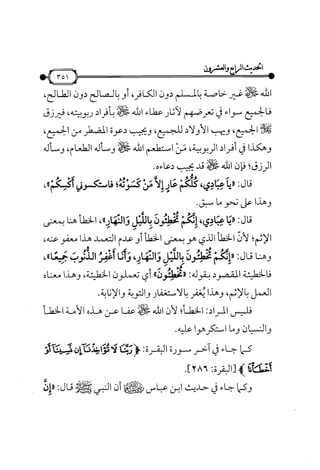 الحديث الرابع والعشرون
٣٥١
الله ﷺ غير خاصة بالمسلم دون الكافر، أو بالصالح دون الطالح،
فالجميع سواء في تعرضهم لآثار عطاء الله ﷺ بأفراد ربوبيته، فيرزق
ﷺ الجميع، ويهب الأولاد للجميع، ويجيب دعوة المضطر من الجميع،
وهكذا في أفراد الربوبية، مَنْ استطعم الله ﷺ وسأله الطعام، وسأله
الرزق؛ فإن الله ﷺ قد يجيب دعاءه.
قال: «يَا عِبَادِي، كُلُّكُمْ عَارٍ إِلاَّ مَنْ كَسَوْتُهُ؛ فاستكسوني أَكْسِكُمْ»،
وهذا على نحو ما سبق.
قال: «يَا عِبَادِي، إِنَّكُمْ تُخْطِئُونَ بِاللَّيْلِ وَالنَّهَارِ»، الخطأ هنا بمعنى
الإثم؛ لأنّ الخطأ الذي هو بمعنى الخطأ أو عدم التعمد هذا معفو عنه،
وهنا قال: «إِنَّكُمْ تُخْطِئُونَ بِاللَّيْلِ وَالنَّهَارِ، وَأَنَا أَغْفِرُ الذُّنُوبَ جَمِيعًا»،
فالخطيئة المقصود بقوله: «تُخْطِئُونَ» أي تعملون الخطيئة، وهذا معناه
العمل بالإثم، وهذا يُغفر بالاستغفار والتوبة والإنابة.
فليس المراد: الخطأ؛ لأن الله ﷺ عفا عن هذه الأمة الخطأ
والنسيان وما استكرهوا عليه.
كما جاء في آخر سورة البقرة: ﴿رَبَّنَا لَا تُؤَاخِذْنَا إِن نَّسِينَا أَوْ
أَخْطَأْنَا﴾ [البقرة: ٢٨٦].
وكما جاء في حديث ابن عباس أن النبي ﷺ قال: «إِنَّ